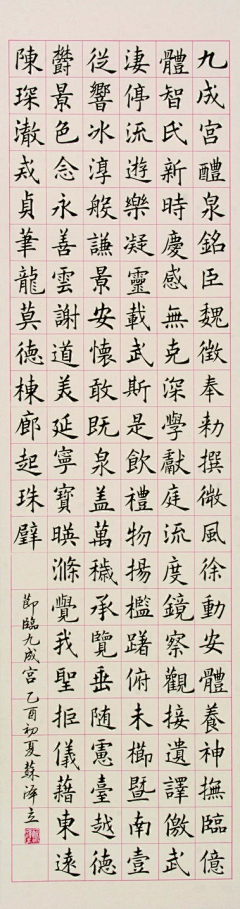 九成宮醴泉銘臣魏徵奉勑撰微風徐動安體養神撫臨億
體智氏新時慶感無克深學獻庭流度鏡察觀接遺譯儌武
淒停流遊樂凝靈載武斯是飲禮物揚檻躇俯未櫛暨南壹
從響冰淳般謙景安懷敢既泉盖萬穢承覽垂随憲臺越德
欝景色念永善雲謝道美延寧寶暎滌覺我聖拒儀藉東遠
陳琛澈戎貞華龍莫德棟廊起珠壁
節臨九成宮乙酉初夏蘇澤立